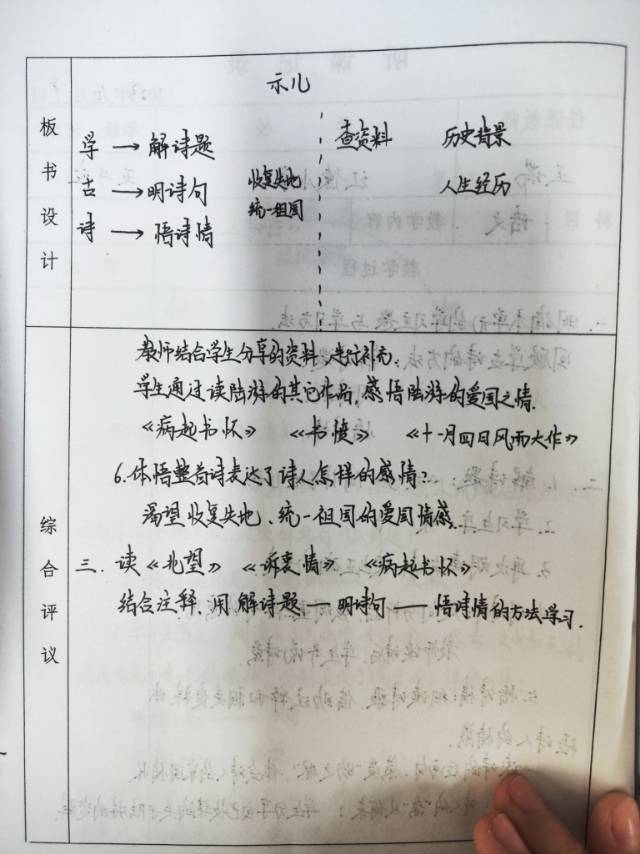 板书设计
示儿
学 → 解诗题
古 → 明诗句
诗 → 悟诗情
收复失地
统一祖国
查资料 历史背景
人生经历
综合评议
教师结合学生分享的资料,进行补充。
学生通过读陆游的其它作品,感悟陆游的爱国之情.
《病起书怀》 《书愤》 《十一月四日风雨大作》
6.体悟整首诗表达了诗人怎样的感情?
渴望收复失地、统一祖国的爱国情感.
三. 读《北望》 《诉衷情》 《病起书怀》
结合注释,用解诗题——明诗句——悟诗情的方法学习.